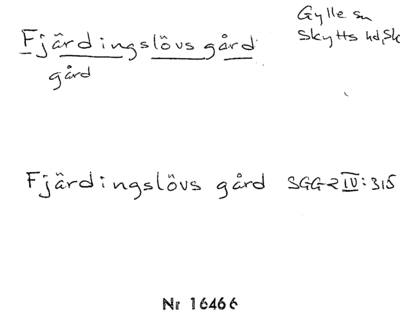 Fjärdingslövs gård
gård
Gylle sn
Skytts hd, Sk
Fjärdingslövs gård SGG 2 IV: 315
Nr 16466